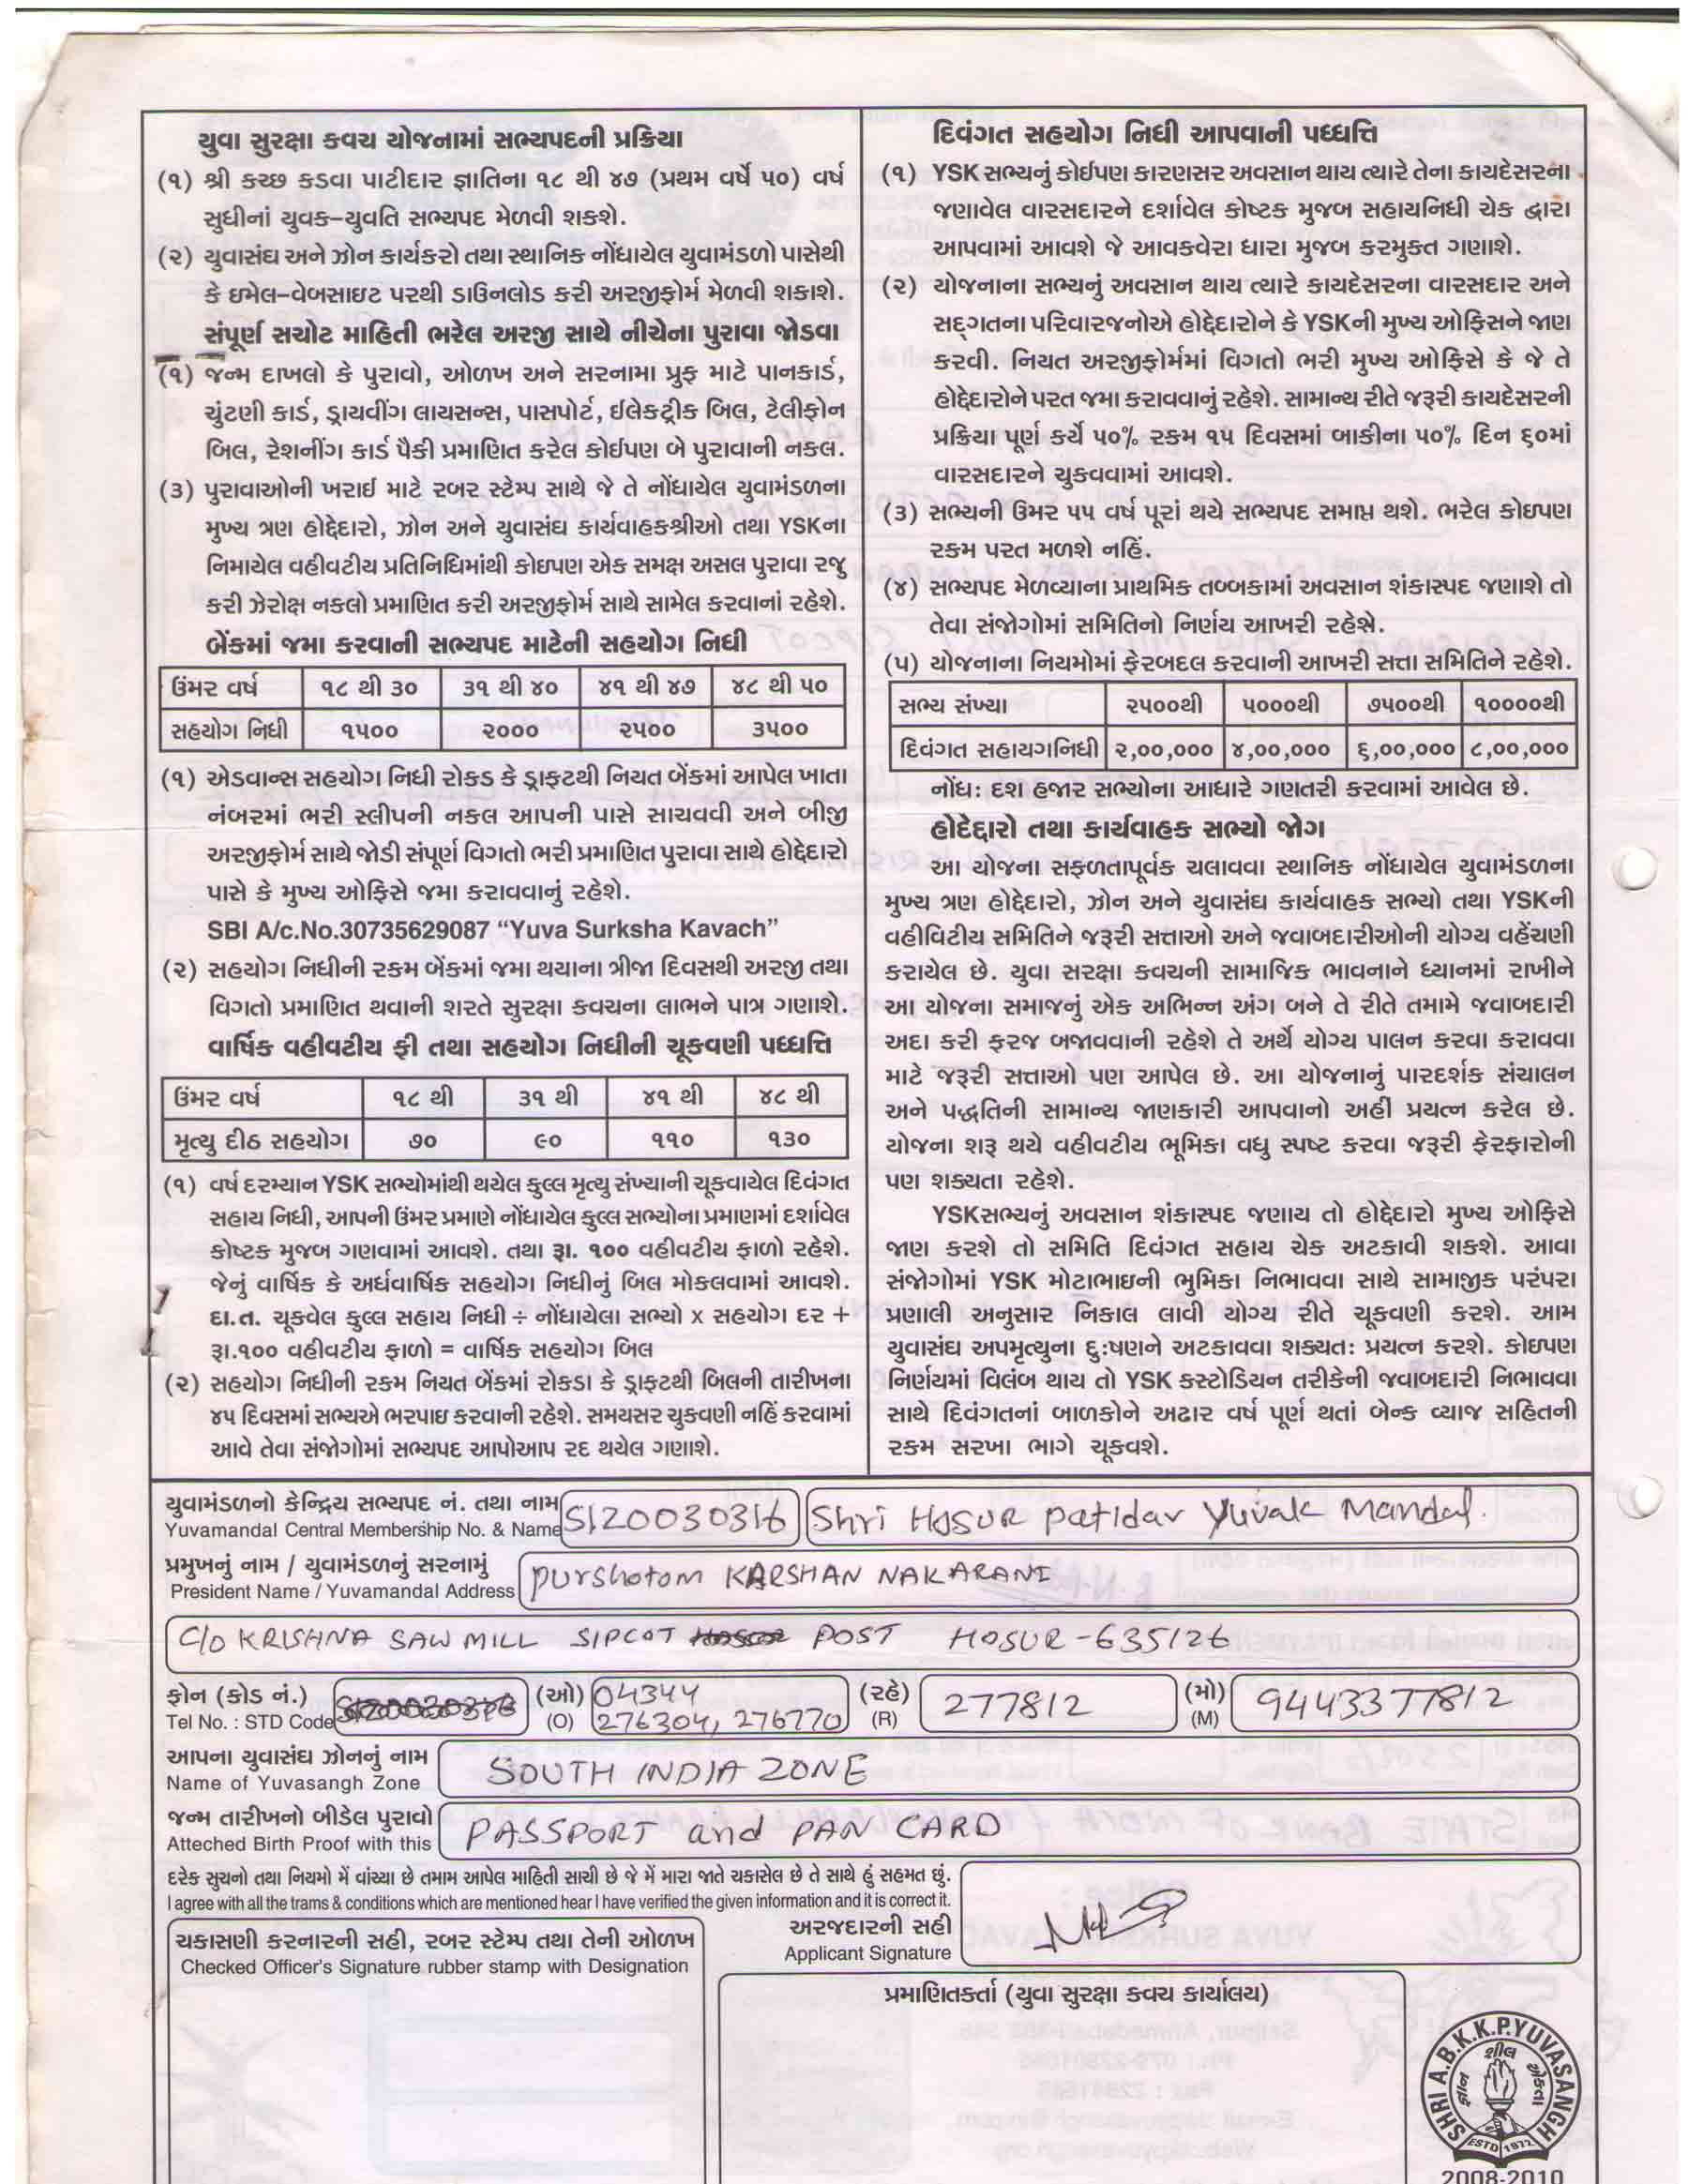 યુવા સુરક્ષા કવચ યોજનામાં સભ્યપદની પ્રક્રિયા
(૧) શ્રી કચ્છ કડવા પાટીદાર જ્ઞાતિના ૧૮ થી ૪૭ (પ્રથમ વર્ષે ૫૦) વર્ષ
સુધીનાં યુવક-યુવતિ સભ્યપદ મેળવી શકશે.
(૨) યુવાસંઘ અને ઝોન કાર્યકરો તથા સ્થાનિક નોંધાયેલ યુવામંડળો પાસેથી
કે ઇમેલ-વેબસાઇટ પરથી ડાઉનલોડ કરી અરજીફોર્મ મેળવી શકાશે.
સંપૂર્ણ સચોટ માહિતી ભરેલ અરજી સાથે નીચેના પુરાવા જોડવા
(૧) જન્મ દાખલો કે પુરાવો, ઓળખ અને સરનામા પ્રુફ માટે પાનકાર્ડ,
ચુંટણી કાર્ડ, ડ્રાયવીંગ લાયસન્સ, પાસપોર્ટ, ઈલેક્ટ્રીક બિલ, ટેલીફોન
બિલ, રેશનીંગ કાર્ડ પૈકી પ્રમાણિત કરેલ કોઈપણ બે પુરાવાની નકલ.
(૩) પુરાવાઓની ખરાઈ માટે રબર સ્ટેમ્પ સાથે જે તે નોંધાયેલ યુવામંડળના
મુખ્ય ત્રણ હોદ્દેદારો, ઝોન અને યુવાસંઘ કાર્યવાહકશ્રીઓ તથા YSKના
નિમાયેલ વહીવટીય પ્રતિનિધિમાંથી કોઇપણ એક સમક્ષ અસલ પુરાવા રજુ
કરી ઝેરોક્ષ નકલો પ્રમાણિત કરી અરજીફોર્મ સાથે સામેલ કરવાનાં રહેશે.
બેંકમાં જમા કરવાની સભ્યપદ માટેની સહયોગ નિધી
ઉંમર વર્ષ ૧૮ થી ૩૦ ૩૧ થી ૪૦ ૪૧ થી ૪૭ ૪૮ થી ૫૦
સહયોગ નિધી ૧૫૦૦ ૨૦૦૦ ૨૫૦૦ ૩૫૦૦
(૧) એડવાન્સ સહયોગ નિધી રોકડ કે ડ્રાફટથી નિયત બેંકમાં આપેલ ખાતા
નંબરમાં ભરી સ્લીપની નકલ આપની પાસે સાચવવી અને બીજી
અરજીફોર્મ સાથે જોડી સંપૂર્ણ વિગતો ભરી પ્રમાણિત પુરાવા સાથે હોદ્દેદારો
પાસે કે મુખ્ય ઓફિસે જમા કરાવવાનું રહેશે.
SBI A/c.No.30735629087 “Yuva Surksha Kavach”
(૨) સહયોગ નિધીની રકમ બેંકમાં જમા થયાના ત્રીજા દિવસથી અરજી તથા
વિગતો પ્રમાણિત થવાની શરતે સુરક્ષા કવચના લાભને પાત્ર ગણાશે.
વાર્ષિક વહીવટીય ફી તથા સહયોગ નિધીની ચૂકવણી પધ્ધત્તિ
ઉંમર વર્ષ ૧૮ થી ૩૧ થી ૪૧ થી ૪૮ થી
મૃત્યુ દીઠ સહયોગ ૭૦ ૯૦ ૧૧૦ ૧૩૦
(૧) વર્ષ દરમ્યાન YSK સભ્યોમાંથી થયેલ કુલ્લ મૃત્યુ સંખ્યાની ચૂકવાયેલ દિવંગત
સહાય નિધી, આપની ઉંમર પ્રમાણે નોંધાયેલ કુલ્લ સભ્યોના પ્રમાણમાં દર્શાવેલ
કોષ્ટક મુજબ ગણવામાં આવશે. તથા રૂા. ૧૦૦ વહીવટીય ફાળો રહેશે.
જેનું વાર્ષિક કે અર્ધવાર્ષિક સહયોગ નિધીનું બિલ મોકલવામાં આવશે.
દા.ત. ચૂકવેલ કુલ્લ સહાય નિધી ÷ નોંધાયેલા સભ્યો x સહયોગ દર +
રૂા.૧૦૦ વહીવટીય ફાળો = વાર્ષિક સહયોગ બિલ
(૨) સહયોગ નિધીની રકમ નિયત બેંકમાં રોકડા કે ડ્રાફટથી બિલની તારીખના
૪૫ દિવસમાં સભ્યએ ભરપાઇ કરવાની રહેશે. સમયસર ચુકવણી નહિં કરવામાં
આવે તેવા સંજોગોમાં સભ્યપદ આપોઆપ રદ થયેલ ગણાશે.
દિવંગત સહયોગ નિધી આપવાની પધ્ધત્તિ
(૧) YSK સભ્યનું કોઈપણ કારણસર અવસાન થાય ત્યારે તેના કાયદેસરના
જણાવેલ વારસદારને દર્શાવેલ કોષ્ટક મુજબ સહાયનિધી ચેક દ્વારા
આપવામાં આવશે જે આવકવેરા ધારા મુજબ કરમુક્ત ગણાશે.
(૨) યોજનાના સભ્યનું અવસાન થાય ત્યારે કાયદેસરના વારસદાર અને
સદ્‌ગતના પરિવારજનોએ હોદ્દેદારોને કે YSKની મુખ્ય ઓફિસને જાણ
કરવી. નિયત અરજીફોર્મમાં વિગતો ભરી મુખ્ય ઓફિસે કે જે તે
હોદ્દેદારોને પરત જમા કરાવવાનું રહેશે. સામાન્ય રીતે જરૂરી કાયદેસરની
પ્રક્રિયા પૂર્ણ કર્યે ૫૦% રકમ ૧૫ દિવસમાં બાકીના ૫૦% દિન ૬૦માં
વારસદારને ચુકવવામાં આવશે.
(૩) સભ્યની ઉંમર ૫૫ વર્ષ પૂરાં થયે સભ્યપદ સમાપ્ત થશે. ભરેલ કોઇપણ
રકમ પરત મળશે નહિં.
(૪) સભ્યપદ મેળવ્યાના પ્રાથમિક તબ્બકામાં અવસાન શંકાસ્પદ જણાશે તો
તેવા સંજોગોમાં સમિતિનો નિર્ણય આખરી રહેશે.
(૫) યોજનાના નિયમોમાં ફેરબદલ કરવાની આખરી સત્તા સમિતિને રહેશે.
સભ્ય સંખ્યા ૨૫૦૦થી ૫૦૦૦થી ૭૫૦૦થી ૧૦૦૦૦થી
દિવંગત સહાયગનિધી ૨,૦૦,૦૦૦ ૪,૦૦,૦૦૦ ૬,૦૦,૦૦૦ ૮,૦૦,૦૦૦
નોંધ: દશ હજાર સભ્યોના આધારે ગણતરી કરવામાં આવેલ છે.
હોદેદ્દારો તથા કાર્યવાહક સભ્યો જોગ
આ યોજના સફળતાપૂર્વક ચલાવવા સ્થાનિક નોંધાયેલ યુવામંડળના
મુખ્ય ત્રણ હોદ્દેદારો, ઝોન અને યુવાસંઘ કાર્યવાહક સભ્યો તથા YSKની
વહીવિટીય સમિતિને જરૂરી સત્તાઓ અને જવાબદારીઓની યોગ્ય વહેંચણી
કરાયેલ છે. યુવા સરક્ષા કવચની સામાજિક ભાવનાને ધ્યાનમાં રાખીને
આ યોજના સમાજનું એક અભિન્ન અંગ બને તે રીતે તમામે જવાબદારી
અદા કરી ફરજ બજાવવાની રહેશે તે અર્થે યોગ્ય પાલન કરવા કરાવવા
માટે જરૂરી સત્તાઓ પણ આપેલ છે. આ યોજનાનું પારદર્શક સંચાલન
અને પદ્ધતિની સામાન્ય જાણકારી આપવાનો અહીં પ્રયત્ન કરેલ છે.
યોજના શરૂ થયે વહીવટીય ભૂમિકા વધુ સ્પષ્ટ કરવા જરૂરી ફેરફારોની
પણ શક્યતા રહેશે.
YSKસભ્યનું અવસાન શંકાસ્પદ જણાય તો હોદ્દેદારો મુખ્ય ઓફિસે
જાણ કરશે તો સમિતિ દિવંગત સહાય ચેક અટકાવી શકશે. આવા
સંજોગોમાં YSK મોટાભાઇની ભુમિકા નિભાવવા સાથે સામાજીક પરંપરા
પ્રણાલી અનુસાર નિકાલ લાવી યોગ્ય રીતે ચૂકવણી કરશે. આમ
યુવાસંઘ અપમૃત્યુના દુ:ષણને અટકાવવા શક્યત: પ્રયત્ન કરશે. કોઇપણ
નિર્ણયમાં વિલંબ થાય તો YSK કસ્ટોડિયન તરીકેની જવાબદારી નિભાવવા
સાથે દિવંગતનાં બાળકોને અઢાર વર્ષ પૂર્ણ થતાં બેન્ક વ્યાજ સહિતની
રકમ સરખા ભાગે ચૂકવશે.
યુવામંડળનો કેન્દ્રિય સભ્યપદ નં. તથા નામ
Yuvamandal Central Membership No. & Name S120030316 Shri HOSUR patidar Yuvak Mandal.
પ્રમુખનું નામ / યુવામંડળનું સરનામું
President Name / Yuvamandal Address purshotam KARSHAN NAKARANI
C/o KRISHNA SAW MILL SIPCOT POST HOSUR-635126
ફોન (કોડ નં.) (ઓ) 04344 (રહે) (મો)
Tel No. : STD Code (O) 276304, 276770 (R) 277812 (M) 9443377812
આપના યુવાસંઘ ઝોનનું નામ
Name of Yuvasangh Zone SOUTH INDIA ZONE
જન્મ તારીખનો બીડેલ પુરાવો
Atteched Birth Proof with this PASSPORT and PAN CARD
દરેક સુચનો તથા નિયમો મેં વાંચ્યા છે તમામ આપેલ માહિતી સાચી છે જે મેં મારા જાતે ચકાસેલ છે તે સાથે હું સહમત છું.
I agree with all the trams & conditions which are mentioned hear I have verified the given information and it is correct it.
અરજદારની સહી
Applicant Signature
ચકાસણી કરનારની સહી, રબર સ્ટેમ્પ તથા તેની ઓળખ
Checked Officer's Signature rubber stamp with Designation
પ્રમાણિતકર્તા (યુવા સુરક્ષા કવચ કાર્યાલય)
SHRI A.B.K.K.P.YUVASANGH
શીલ
જ્ઞાન
એકતા
ESTD 1972
2008-2010